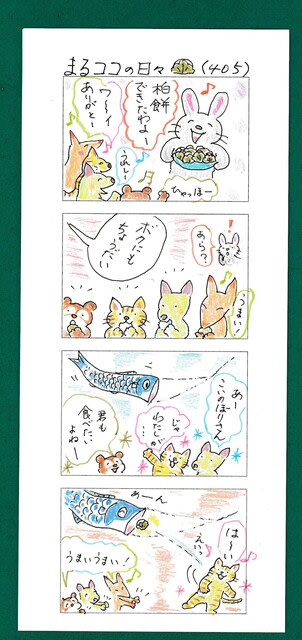 まるココの日々 (405)
柏餅
できたわよー
ワーイ
ありがとー
うれしー
ひゃっほー
ボクにも
ちょうだい
あらっ?
!
うまい!
あー
こいのぼりさん
じゃ
わたこが…
君も
食べたい
よねー
あーん
は〜い
えいっ
うまいうまい!